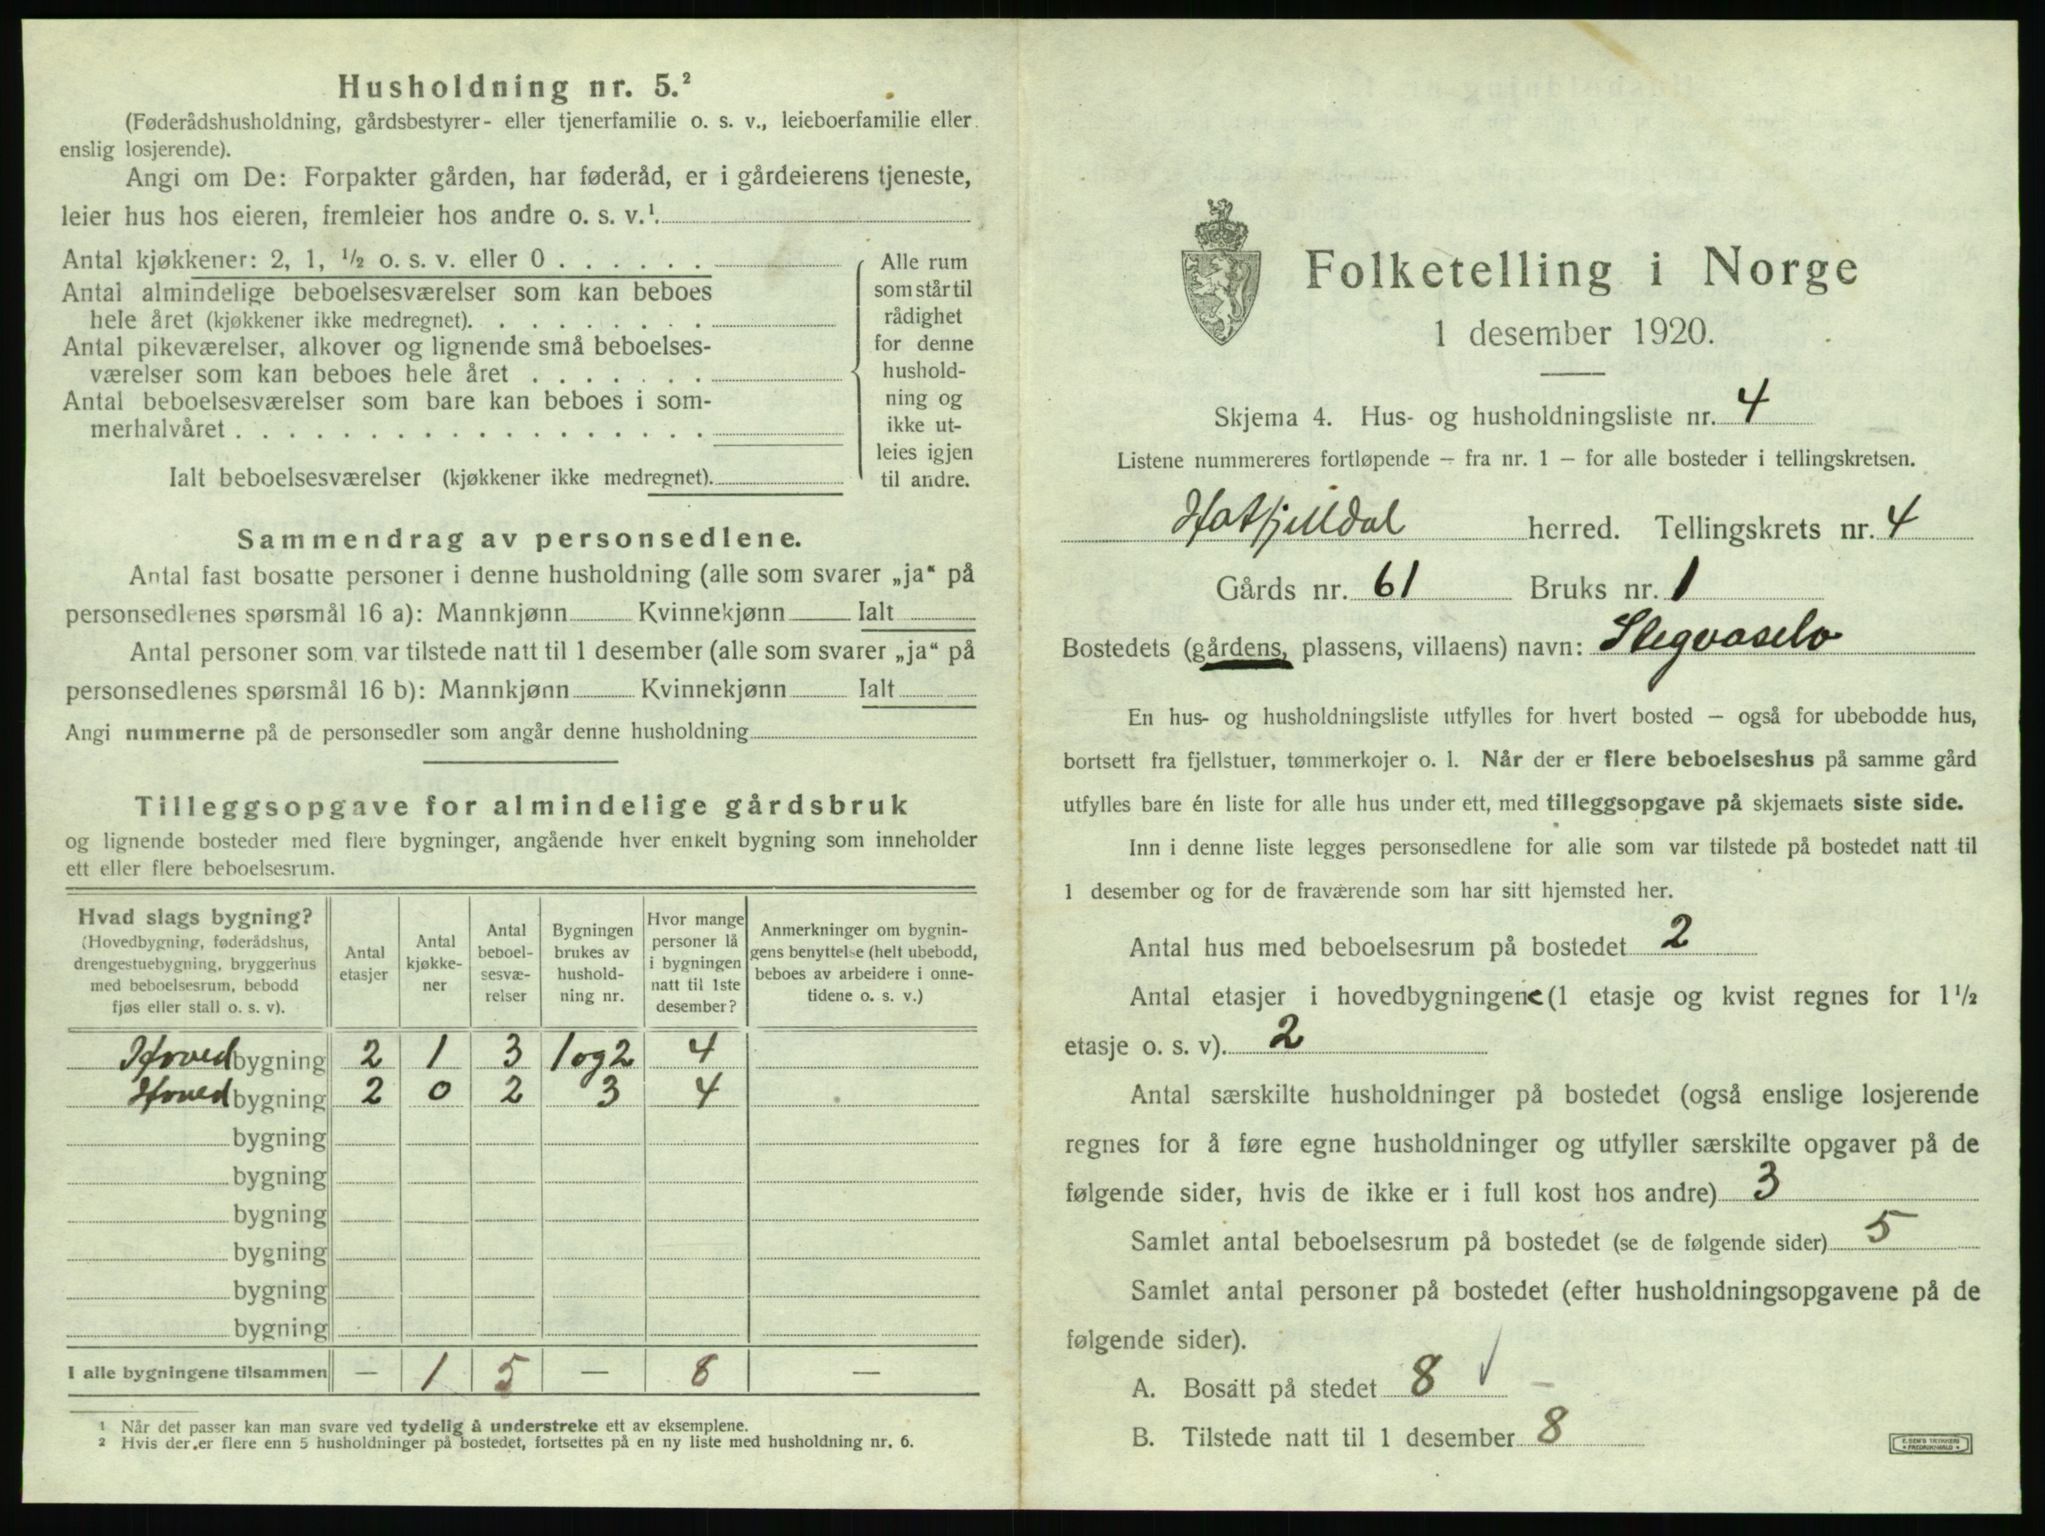 Husholdning nr. 5.²
(Føderådshusholdning, gårdsbestyrer- eller tjenerfamilie o. s. v., leieboerfamilie eller
enslig losjerende).
Angi om De: Forpakter gården, har føderåd, er i gårdeierens tjeneste,
leier hus hos eieren, fremleier hos andre o. s. v.¹.
Antal kjøkkener: 2, 1, ½ o. s. v. eller 0 . . . . . .
Antal almindelige beboelsesværelser som kan beboes
hele året (kjøkkener ikke medregnet). . . . . . . . .
Antal pikeværelser, alkover og lignende små beboelses-
værelser som kan beboes hele året . . . . . . .
Antal beboelsesværelser som bare kan beboes i som-
merhalvåret . . . . . . . . . . . . . . . . . .
Ialt beboelsesværelser (kjøkkener ikke medregnet).
Alle rum
som står til
rådighet
for denne
hushold-
ning og
ikke ut-
leies igjen
til andre.
Sammendrag av personsedlene.
Antal fast bosatte personer i denne husholdning (alle som svarer „ja“ på
personsedlenes spørsmål 16 a): Mannkjønn Kvinnekjønn Ialt
Antal personer som var tilstede natt til 1 desember (alle som svarer „ja“ på
personsedlenes spørsmål 16 b): Mannkjønn Kvinnekjønn Ialt
Angi nummerne på de personsedler som angår denne husholdning
Tilleggsopgave for almindelige gårdsbruk
og lignende bosteder med flere bygninger, angående hver enkelt bygning som inneholder
ett eller flere beboelsesrum.
Hvad slags bygning?
(Hovedbygning, føderådshus,
drengestuebygning, bryggerhus
med beboelsesrum, bebodd
fjøs eller stall o. s. v).
Antal
etasjer
Antal
kjøkke-
ner
Antal
beboel-
sesvæ-
relser
Bygningen
brukes av
hushold-
ning nr.
Hvor mange
personer lå
i bygningen
natt til 1ste
desember?
Anmerkninger om bygnin-
gens benyttelse (helt ubebodd,
beboes av arbeidere i onne-
tidene o. s. v.)
Hovedbygning 2 1 3 1 og 2 4
Hovedbygning 2 0 2 3 4
bygning
bygning
bygning
bygning
bygning
bygning
I alle bygningene tilsammen — 1 5 — 8 —
¹ Når det passer kan man svare ved tydelig å understreke ett av eksemplene.
² Hvis der er flere enn 5 husholdninger på bostedet, fortsettes på en ny liste med husholdning nr. 6.
Folketelling i Norge
1 desember 1920.
Skjema 4. Hus- og husholdningsliste nr. 4
Listene nummereres fortløpende – fra nr. 1 – for alle bosteder i tellingskretsen.
Hatfjelldal herred. Tellingskrets nr. 4
Gårds nr. 61 Bruks nr. 1
Bostedets (gårdens, plassens, villaens) navn: Stegvaselv
En hus- og husholdningsliste utfylles for hvert bosted – også for ubebodde hus,
bortsett fra fjellstuer, tømmerkojer o. l. Når der er flere beboelseshus på samme gård
utfylles bare én liste for alle hus under ett, med tilleggsopgave på skjemaets siste side.
Inn i denne liste legges personsedlene for alle som var tilstede på bostedet natt til
1 desember og for de fraværende som har sitt hjemsted her.
Antal hus med beboelsesrum på bostedet 2
Antal etasjer i hovedbygningene (1 etasje og kvist regnes for 1½
etasje o. s. v). 2
Antal særskilte husholdninger på bostedet (også enslige losjerende
regnes for å føre egne husholdninger og utfyller særskilte opgaver på de
følgende sider, hvis de ikke er i full kost hos andre) 3
Samlet antal beboelsesrum på bostedet (se de følgende sider) 5
Samlet antal personer på bostedet (efter husholdningsopgavene på de
følgende sider).
A. Bosatt på stedet 8 √
B. Tilstede natt til 1 desember 8